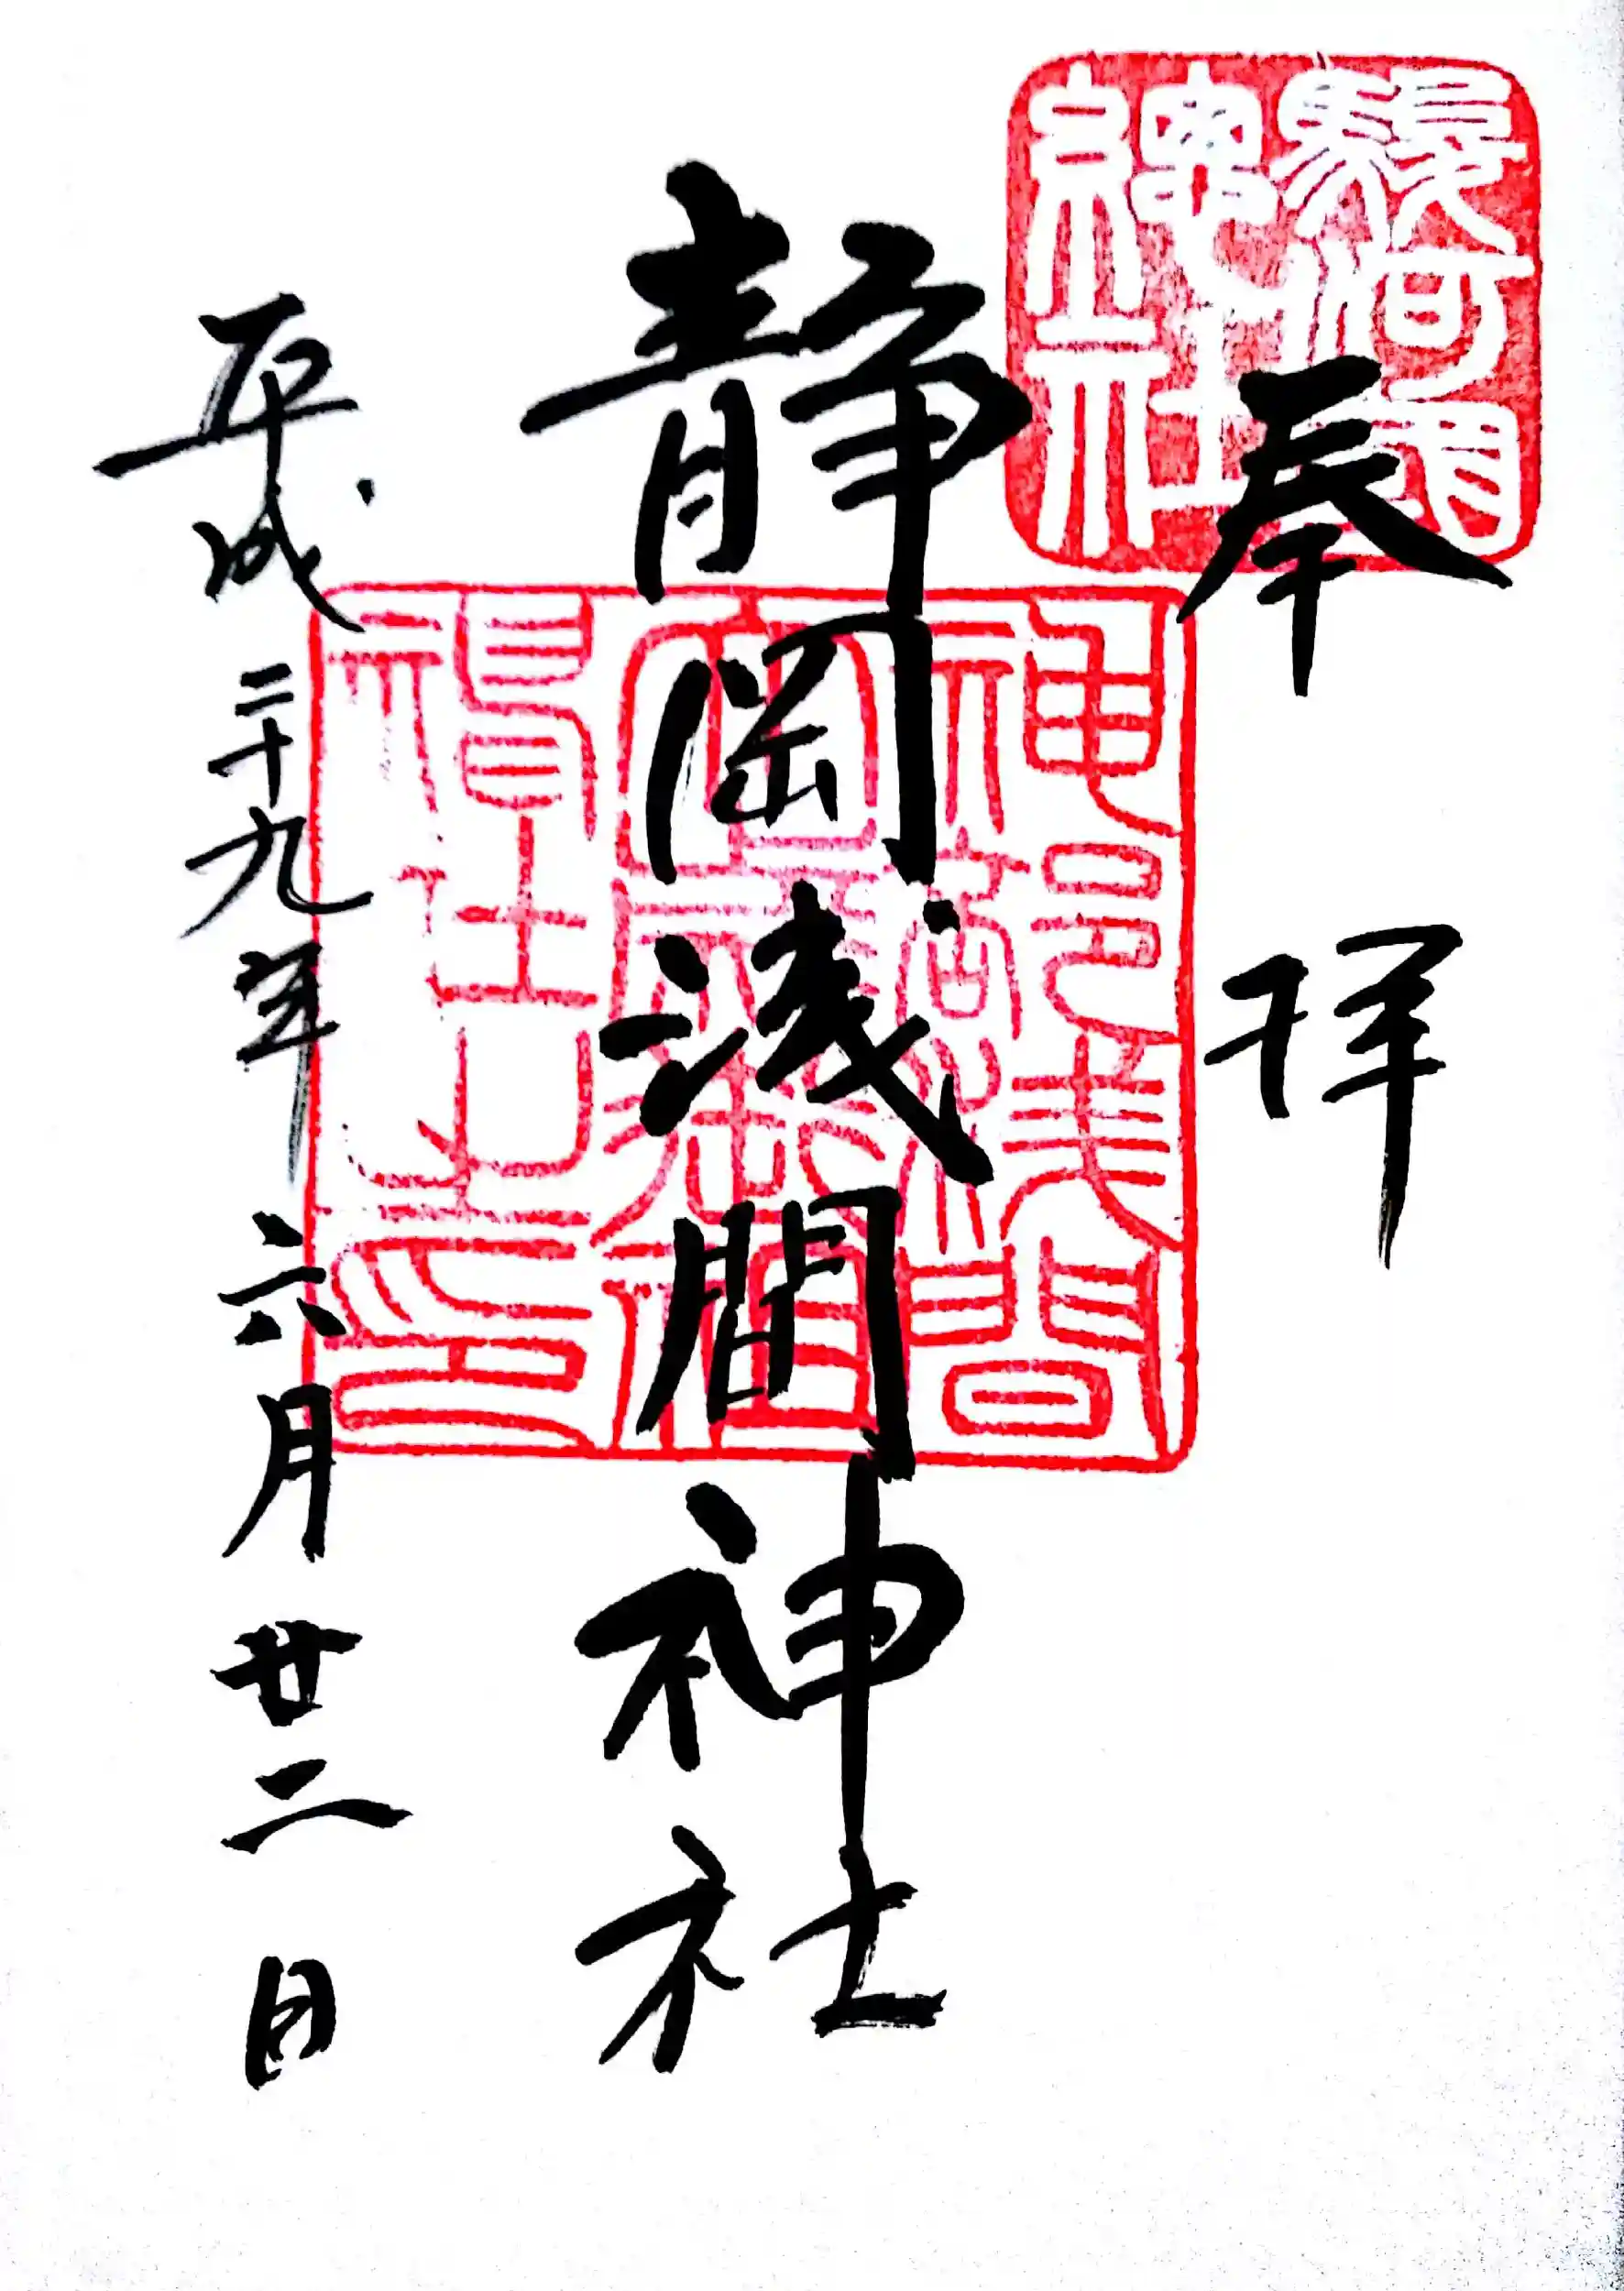 駿河國
總社
奉拝
静岡浅間神社
平成二十九年六月廿二日
神部浅間
大歳御祖
神社之印